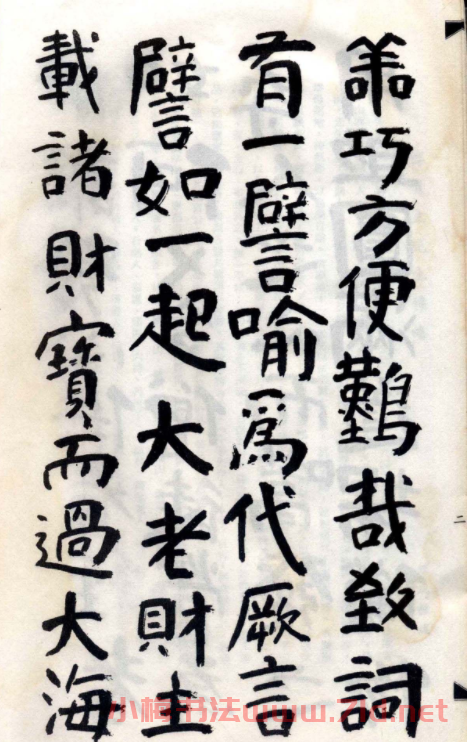 善巧方便鷜哉致詞
有一譬喻爲代厥言
譬如一起大老財主
載諸財寶而過大海
二
小梅书法www.zld.net